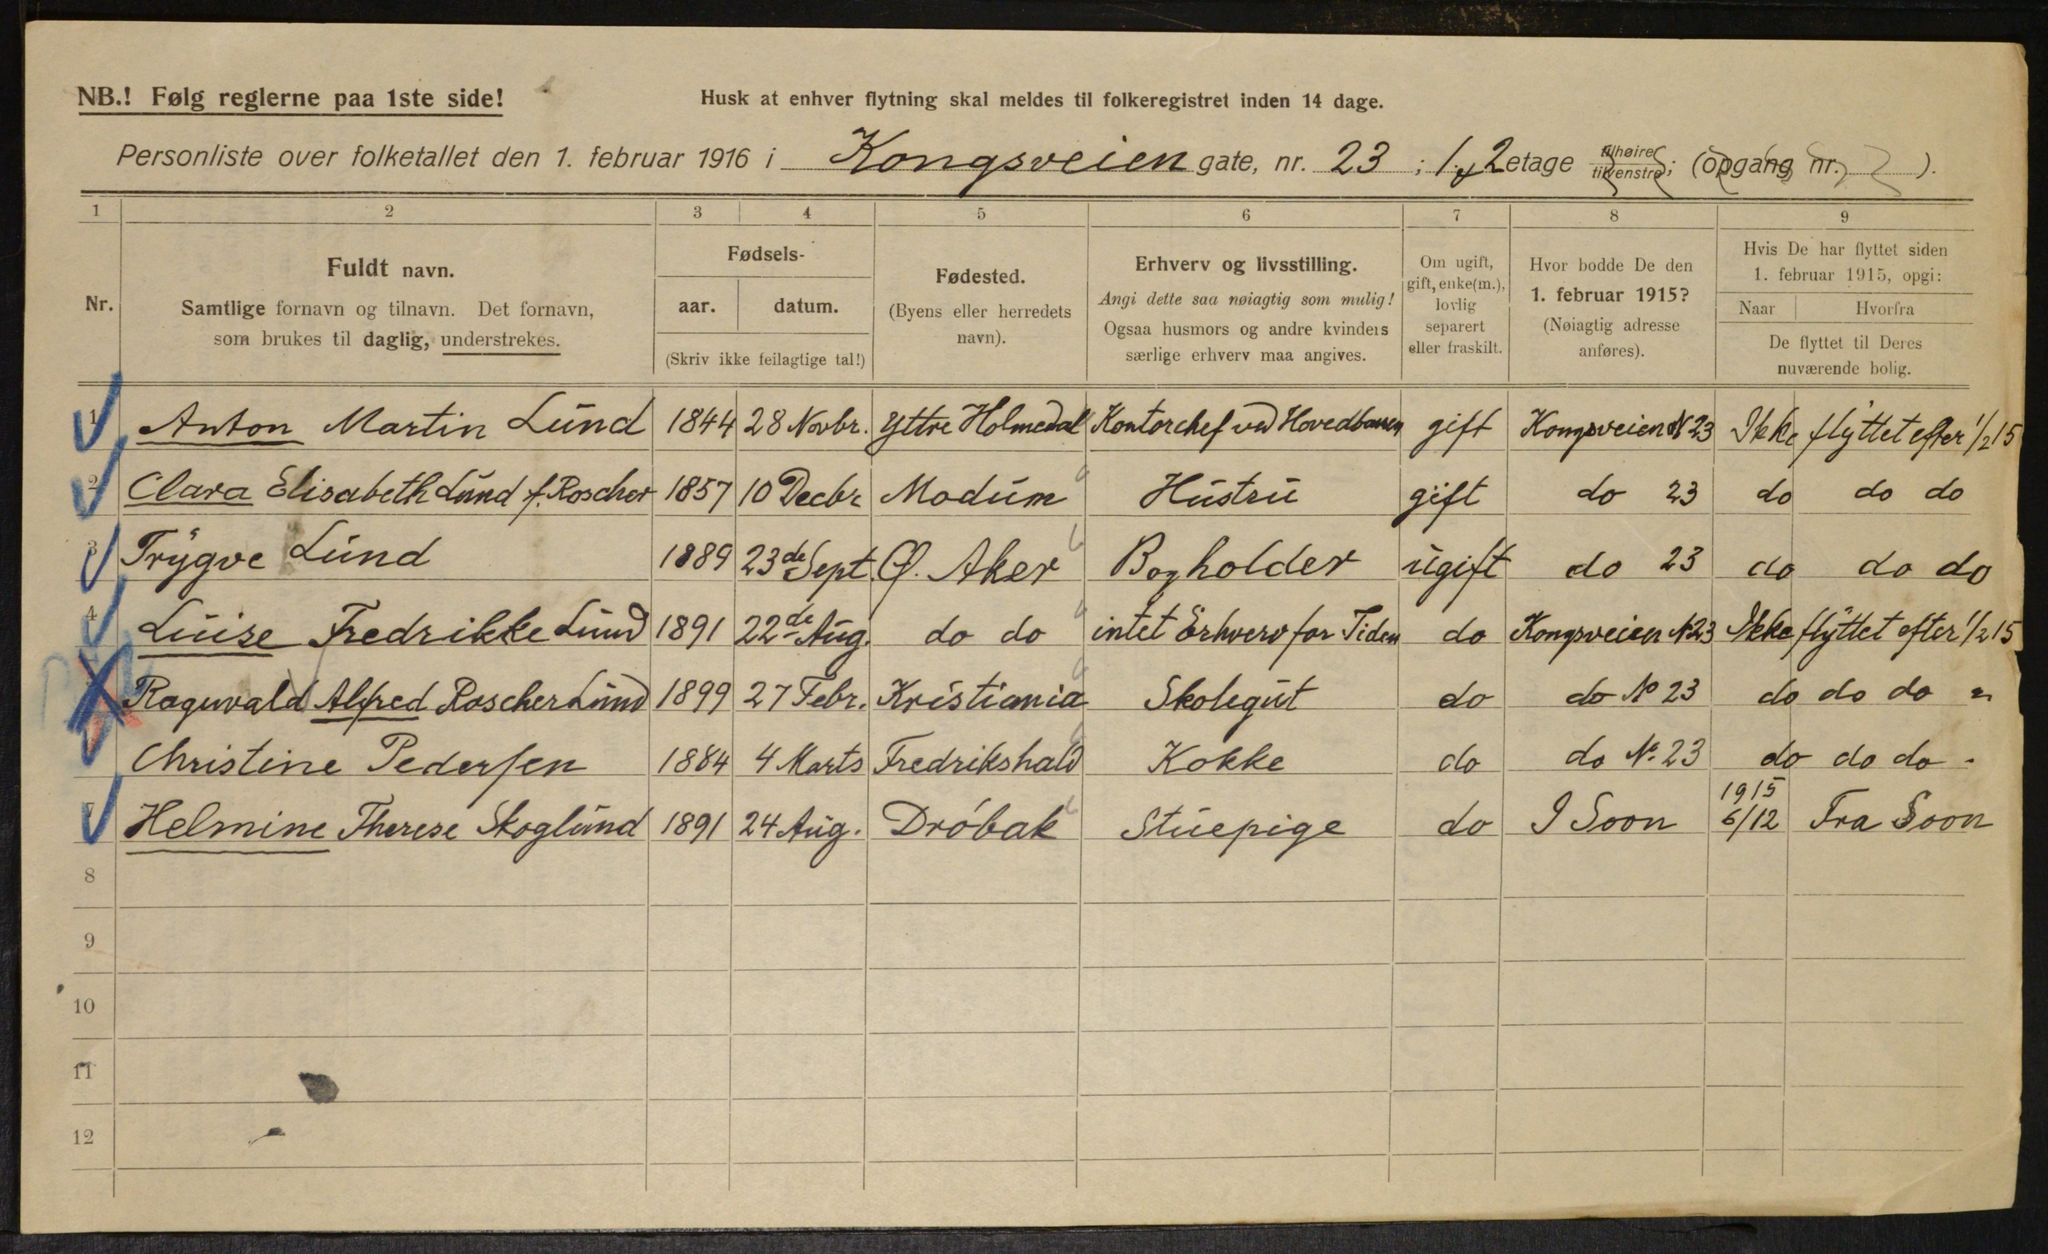 NB.! Følg reglerne paa 1ste side!
Husk at enhver flytning skal meldes til folkeregistret inden 14 dage.
Personliste over folketallet den 1. februar 1916 i Kongsveien gate, nr. 23 ; 1. 2 etage tilhøire tilvenstre; (opgang nr. ).
1 2 3 4 5 6 7 8 9
Nr.
Fuldt navn.
Samtlige fornavn og tilnavn. Det fornavn,
som brukes til daglig, understrekes.
Fødsels-
aar. datum.
(Skriv ikke feilagtige tal!)
Fødested.
(Byens eller herredets
navn).
Erhverv og livsstilling.
Angi dette saa nøiagtig som mulig!
Ogsaa husmors og andre kvinders
særlige erhverv maa angives.
Om ugift,
gift, enke(m.),
lovlig
separert
eller fraskilt.
Hvor bodde De den
1. februar 1915?
(Nøiagtig adresse
anføres).
Hvis De har flyttet siden
1. februar 1915, opgi:
Naar Hvorfra
De flyttet til Deres
nuværende bolig.
1 Anton Martin Lund 1844 28 Novbr. Yttre Holmedal Kontorchef ved Hovedbanen gift Kongsveien N 23 Ikke flyttet efter 1/2 15
2 Clara Elisabeth Lund f. Roscher 1857 10 Decbr Modum Hustru gift do 23 do do do
3 Trygve Lund 1889 23de Sept Ø. Aker Bogholder ugift do 23 do do do
4 Luise Fredrikke Lund 1891 22de Aug. do do intet Erhverv for Tiden do Kongsveien N 23 Ikke flyttet efter 1/2 15
Ragnvald Alfred Roscher Lund 1899 27 Febr. Kristiania Skolegut do do No 23 do do do "
Christine Pedersen 1884 4 Marts Fredrikshald Kokke do do No. 23 do do do -
7 Helmine Therese Skoglund 1891 24 Aug. Drøbak Stuepige do I Soon 1915 6/12 Fra Soon
8
9
10
11
12